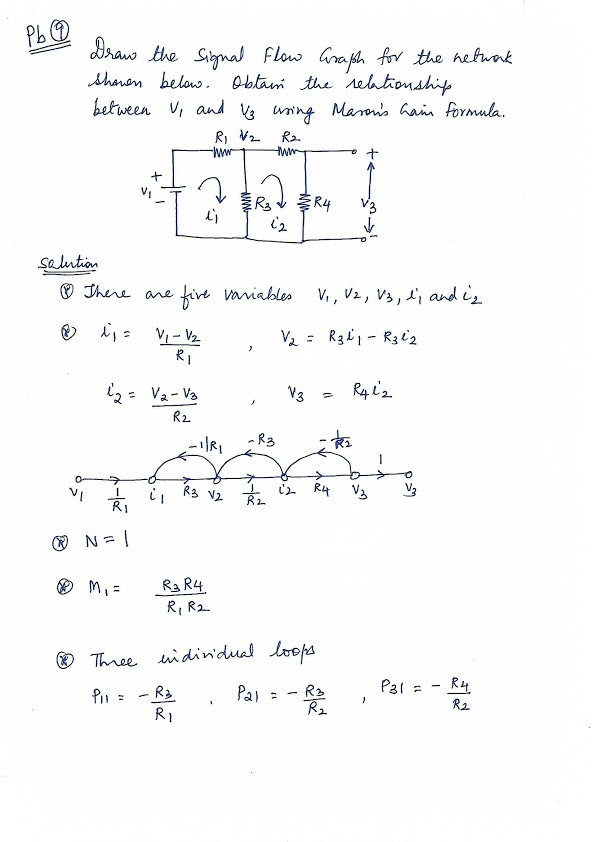 Pb 9
Draw the Signal Flow Graph for the network
shown below. Obtain the relationship
between V1 and V3 using Mason's Gain Formula.
R1 V2 R2
+ V1 - i1 R3 i2 R4 + V3 -
Solution
There are five variables V1, V2, V3, i1 and i2
i1 = (V1 - V2)/R1 , V2 = R3i1 - R3i2
i2 = (V2 - V3)/R2 , V3 = R4i2
-1/R1 -R3 -1/R2 1
V1 1/R1 i1 R3 V2 1/R2 i2 R4 V3 V3
N = 1
M1 = R3R4/R1R2
Three individual loops
P11 = -R3/R1 , P21 = -R3/R2 , P31 = -R4/R2